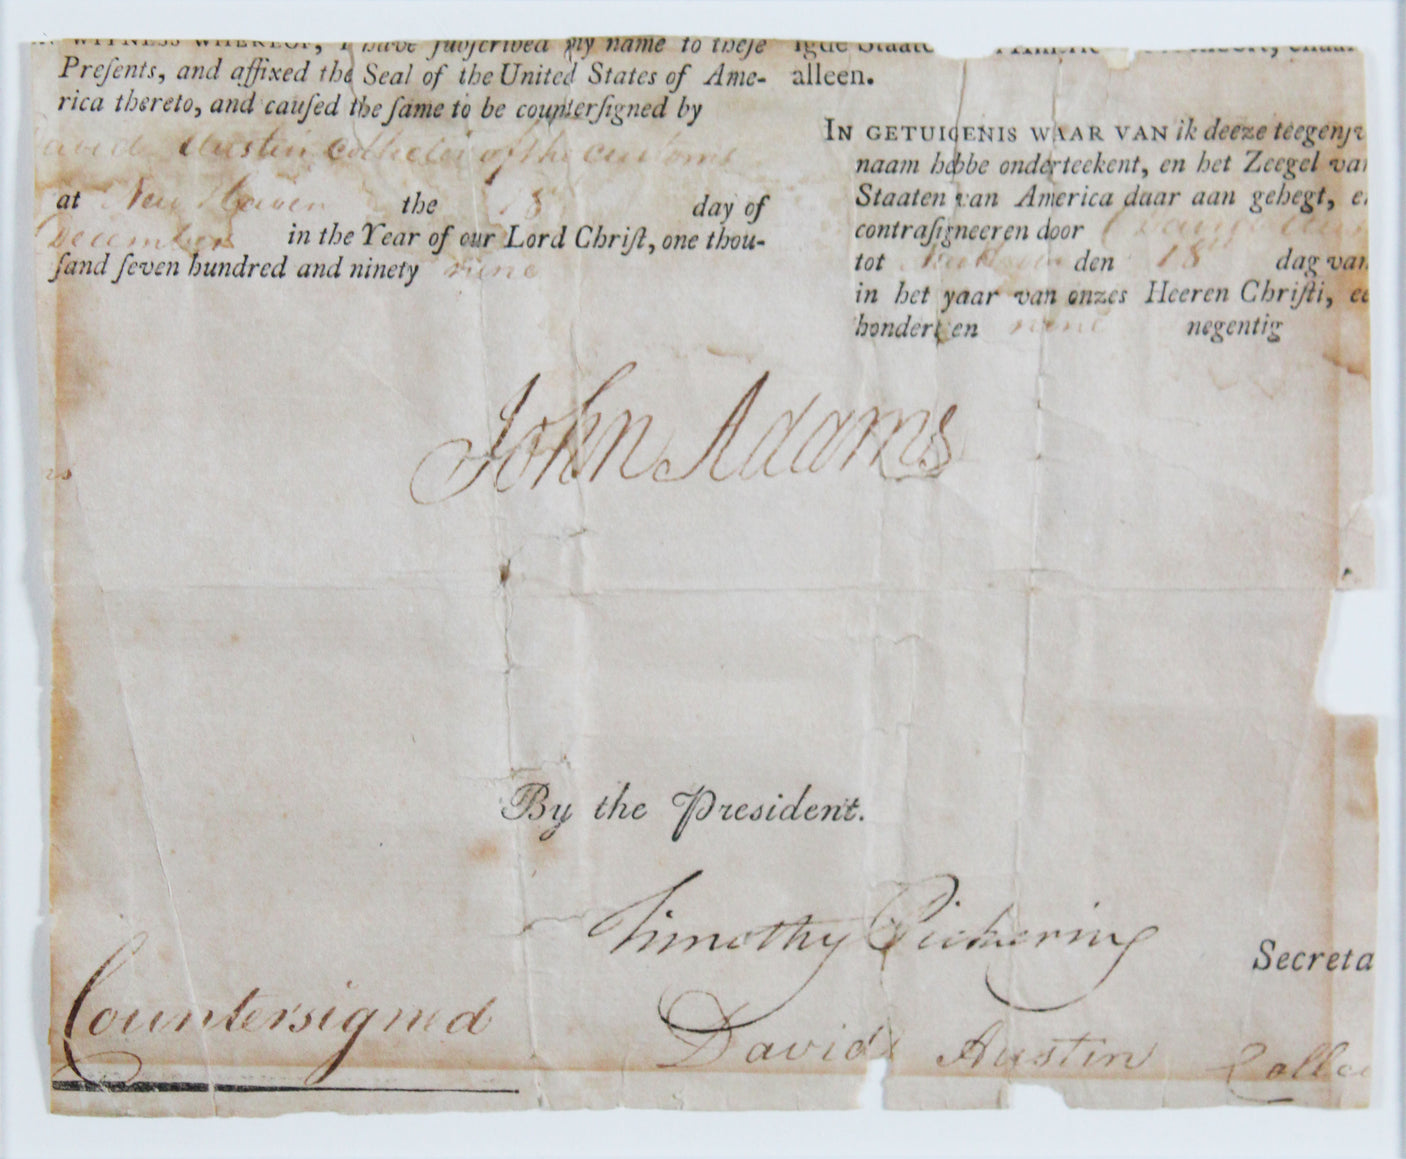 WITNESS WHEREOF, I have ſubſcribed my name to theſe
Preſents, and affixed the Seal of the United States of Ame-
rica thereto, and cauſed the ſame to be counterſigned by
David Austin Collector of the customs
at New Haven the 18 day of
December in the Year of our Lord Chriſt, one thou-
ſand ſeven hundred and ninety nine
alleen.
IN GETUIGENIS WAAR VAN ik deeze teegenſ
naam hebbe onderteekent, en het Zeegel van
Staaten van America daar aan gehegt, e
contraſigneeren door
tot den 18 dag van
in het yaar van onzes Heeren Chriſti, ee
hondert en nine negentig
John Adams
By the President.
Timothy Pickering
Secreta
Countersigned
David Austin Collec